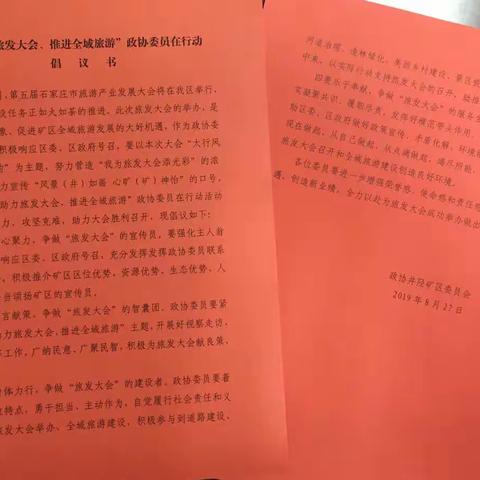 旅发大会、推进全域旅游”政协委员在行动
倡 议 书
，第五届石家庄市旅游产业发展大会将在我区举行，
设任务正如火如荼的推进。此次旅发大会的举办，是
象、促进矿区全域旅游发展的大好机遇，作为政协委
积极响应区委、区政府号召，要以本次大会“太行风
韵”为主题，努力营造“我为旅发大会添光彩”的浓
力宣传“风景（井）如画 心旷（矿）神怡”的口号，
助力旅发大会、推进全域旅游”政协委员在行动活动
力、攻坚克难，助力大会胜利召开，现倡议如下：
心聚力，争做“旅发大会”的宣传员，要强化主人翁
响应区委、区政府号召，充分发挥发挥政协委员联系
，积极推介矿区区位优势、资源优势、生态优势、人
当颂扬矿区的宣传员。
言献策，争做“旅发大会”的智囊团。政协委员要紧
力旅发大会、推进全域旅游”主题，开展好视察走访、
等工作，广纳民意、广聚民智，积极为旅发大会献良策、
体力行，争做“旅发大会”的建设者。政协委员要着
位特点，勇于担当、主动作为，自觉履行社会责任和义
旅发大会举办、全域旅游建设，积极参与到道路建设、
河道治理、造林绿化、美丽乡村建设、景区
中来，以实际行动支持旅发大会的召开、助推
四要乐于奉献，争做“旅发大会”的服务
实凝聚共识、履职尽责，发挥好模范带头作用，
助区委、区政府做好政策宣传、矛盾化解、环境
现在做起，从自己做起，从点滴做起，竭尽所能，
旅发大会召开和全域旅游建设创造良好环境。
各位委员要进一步增强荣誉感、使命感和责任感
遇，创造新业绩，全力以赴为旅发大会成功举办做出
政协井陉矿区委员会
2019 年 8 月 27 日